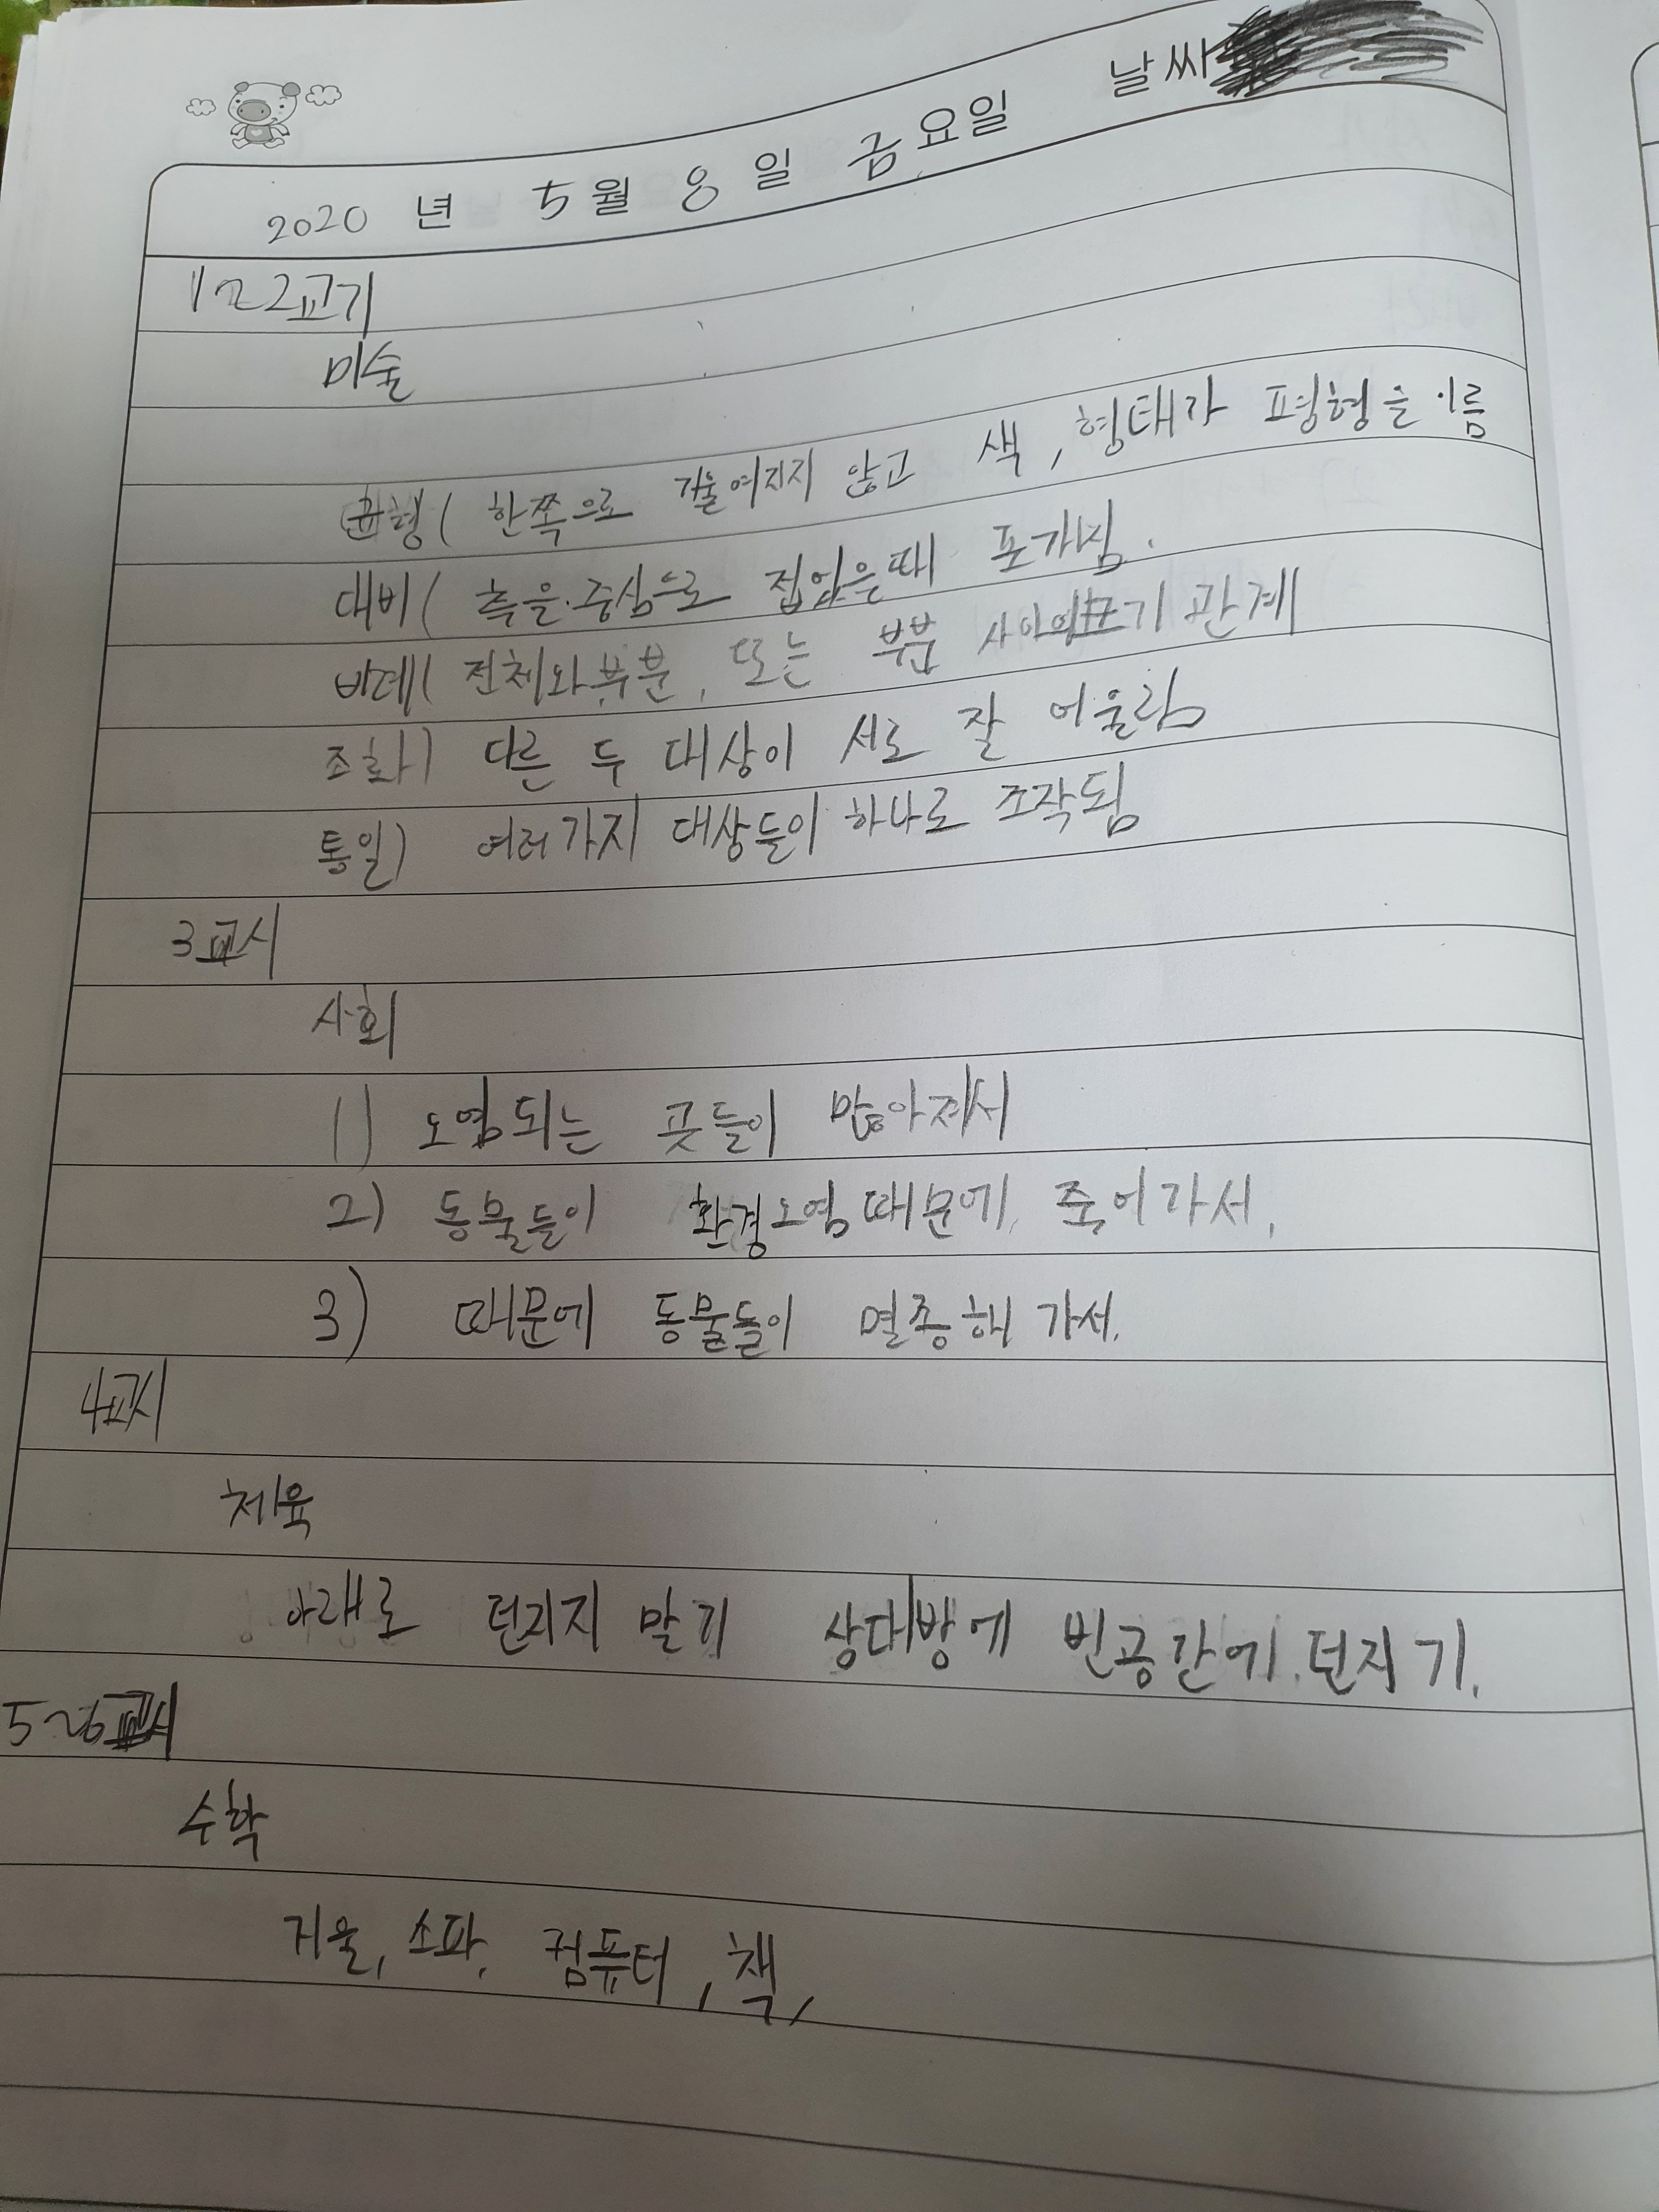 2020 년 5 월 8 일 금 요일 날싸
1~2교기
미술
균형( 한쪽으로 기울여지지 않고 색, 형태가 평형을 이룸
대비( 축을 중심으로 접었을때 포개짐.
비례( 전체와 부분, 또는 부분 사이의 크기 관계
조화) 다른 두 대상이 서로 잘 어울림
통일) 여러가지 대상들이 하나로 조작됨
3교시
사회
1) 오염되는 곳들이 많아져서
2) 동물들이 환경오염때문에 죽어가서.
3) 때문에 동물들이 멸종해 가서.
4교시
체육
아래로 던지지 말기 상대방에 빈공간에 던지기.
5~6교시
수학
거울, 소파, 컴퓨터, 책,